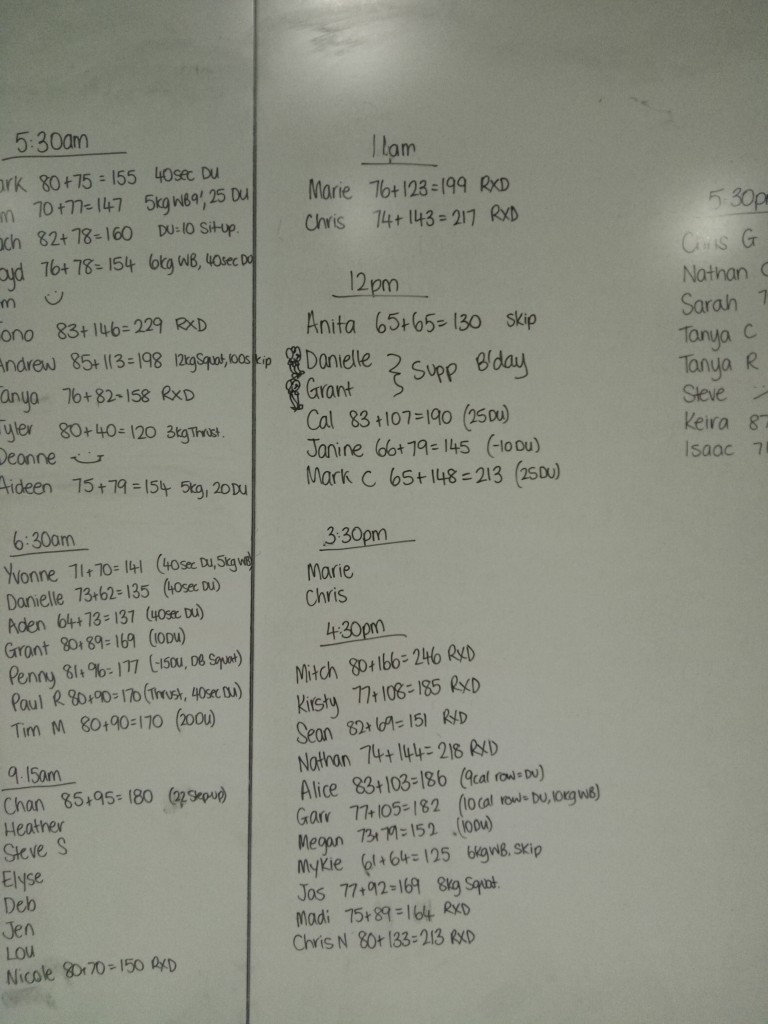 5:30am
ark 80+75=155 40sec DU
m 70+77=147 5kg WB9', 25 DU
ach 82+78=160 DU=10 Situp.
oyd 76+78=154 6kg WB, 40sec DU
m
ono 83+146=229 RXD
Andrew 85+113=198 12kg Squat, 100skip
anya 76+82=158 RXD
Tyler 80+40=120 3kg Thrust.
Deanne
Aideen 75+79=154 5kg, 20DU
6:30am
Yvonne 71+70=141 (40sec DU, 5kg WB)
Danielle 73+62=135 (40sec DU)
Aden 64+73=137 (40sec DU)
Grant 80+89=169 (10DU)
Penny 81+96=177 (-15DU, DB Squat)
Paul R 80+90=170 (Thrust, 40sec DU)
Tim M 80+90=170 (20DU)
9.15am
Chan 85+95=180 (Stepup)
Heather
Steve S
Elyse
Deb
Jen
Lou
Nicole 80+70=150 RXD
11am
Marie 76+123=199 RXD
Chris 74+143=217 RXD
12pm
Anita 65+65=130 skip
Danielle } Supp B'day
Grant
Cal 83+107=190 (25DU)
Janine 66+79=145 (-10DU)
Mark C 65+148=213 (25DU)
3:30pm
Marie
Chris
4:30pm
Mitch 80+166=246 RXD
Kirsty 77+108=185 RXD
Sean 82+69=151 RXD
Nathan 74+144=218 RXD
Alice 83+103=186 (9cal row=DU)
Garr 77+105=182 (10cal row=DU, 10kg WB)
Megan 73+79=152 (10DU)
Mykie 61+64=125 6kg WB, skip
Jas 77+92=169 8kg Squat.
Madi 75+89=164 RXD
Chris N 80+133=213 RXD
5:30p
Chris G
Nathan C
Sarah 7
Tanya C
Tanya R
Steve
Keira 87
Isaac 71